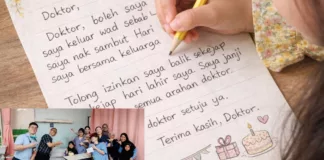 Doktor,
Doktor, boleh saya
keluar wad sebab
saya nak sambut Hari
saya bersama keluarga
Tolong izinkan saya balik sekejap
hari lahir saya. Saya janji
semua arahan doktor.
doktor setuju ya.
Terima kasih, Doktor.